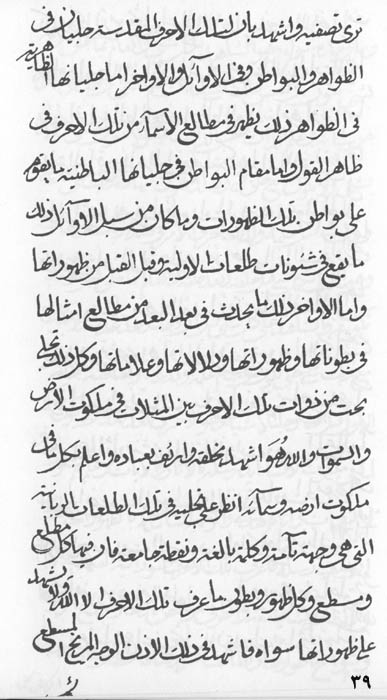 ترى تصفيه واشهد بان لتلك الاحرف المقدسة تجليات فى
الظواهر والبواطن وفى الاوائل والاواخر اما تجلياتها الظاهرية
فى الظواهر ذلك يظهر فى مطالع الاسماء من تلك الاحرف فى
ظاهر القول واما مقام البواطن فى تجلياتها الباطنية ما يقوم
على بواطن تلك الظهورات وما كان من سبل الاوائل ذلك
ما يقع فى شئونات طلعات الاولية وقبل القبل من ظهوراتها
واما الاواخر ذلك ما يحدث فى بعد البعد من مطالع امثالها
فى بطوناتها وظهوراتها ودلالاتها وعلاماتها وكل ذلك تجلى
بحت من ذوات تلك الاحرف بين المثلات فى ملكوت الارض
والسموات والله هو اشهد بخلقه وارئف بعباده واعلم بكل ما فى
ملكوت ارضه وسمائه انظر على تجليه فى تلك الطلعات الربانية
التى هى وجهة تامة وكلمة بالغة ونقطة جامعة فان فيها كل مطلع
ومسطع وكل ظهور وبطون ما عرف تلك الاحرف الا الله ولا يشهد
على ظهوراتها سواه فاشهد فى ذلك الاذن المسطع
٣٩